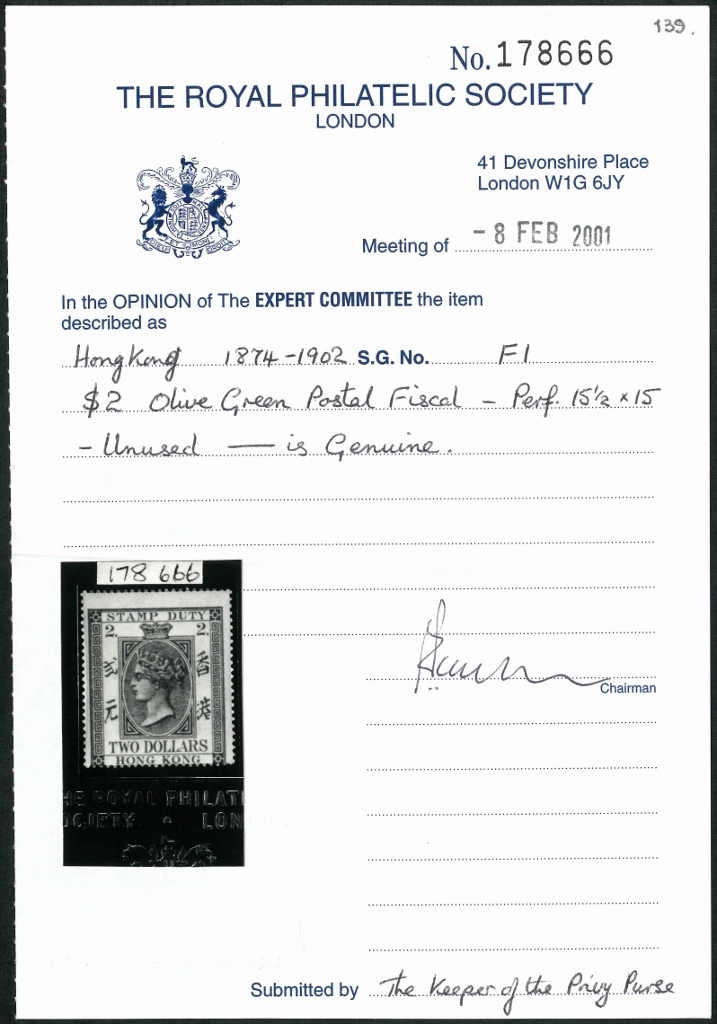 139.
No. 178666
THE ROYAL PHILATELIC SOCIETY
LONDON
41 Devonshire Place
London W1G 6JY
Meeting of - 8 FEB 2001
In the OPINION of The EXPERT COMMITTEE the item
described as
Hong Kong 1874-1902 S.G. No. F1
$2 Olive Green Postal Fiscal - Perf. 15½ x 15
- Unused — is Genuine.
178 666
STAMP DUTY
2. 2.
貳元 香港
TWO DOLLARS
HONG KONG
HE ROYAL PHILATE
OCIETY • LON
Chairman
Submitted by The Keeper of the Privy Purse